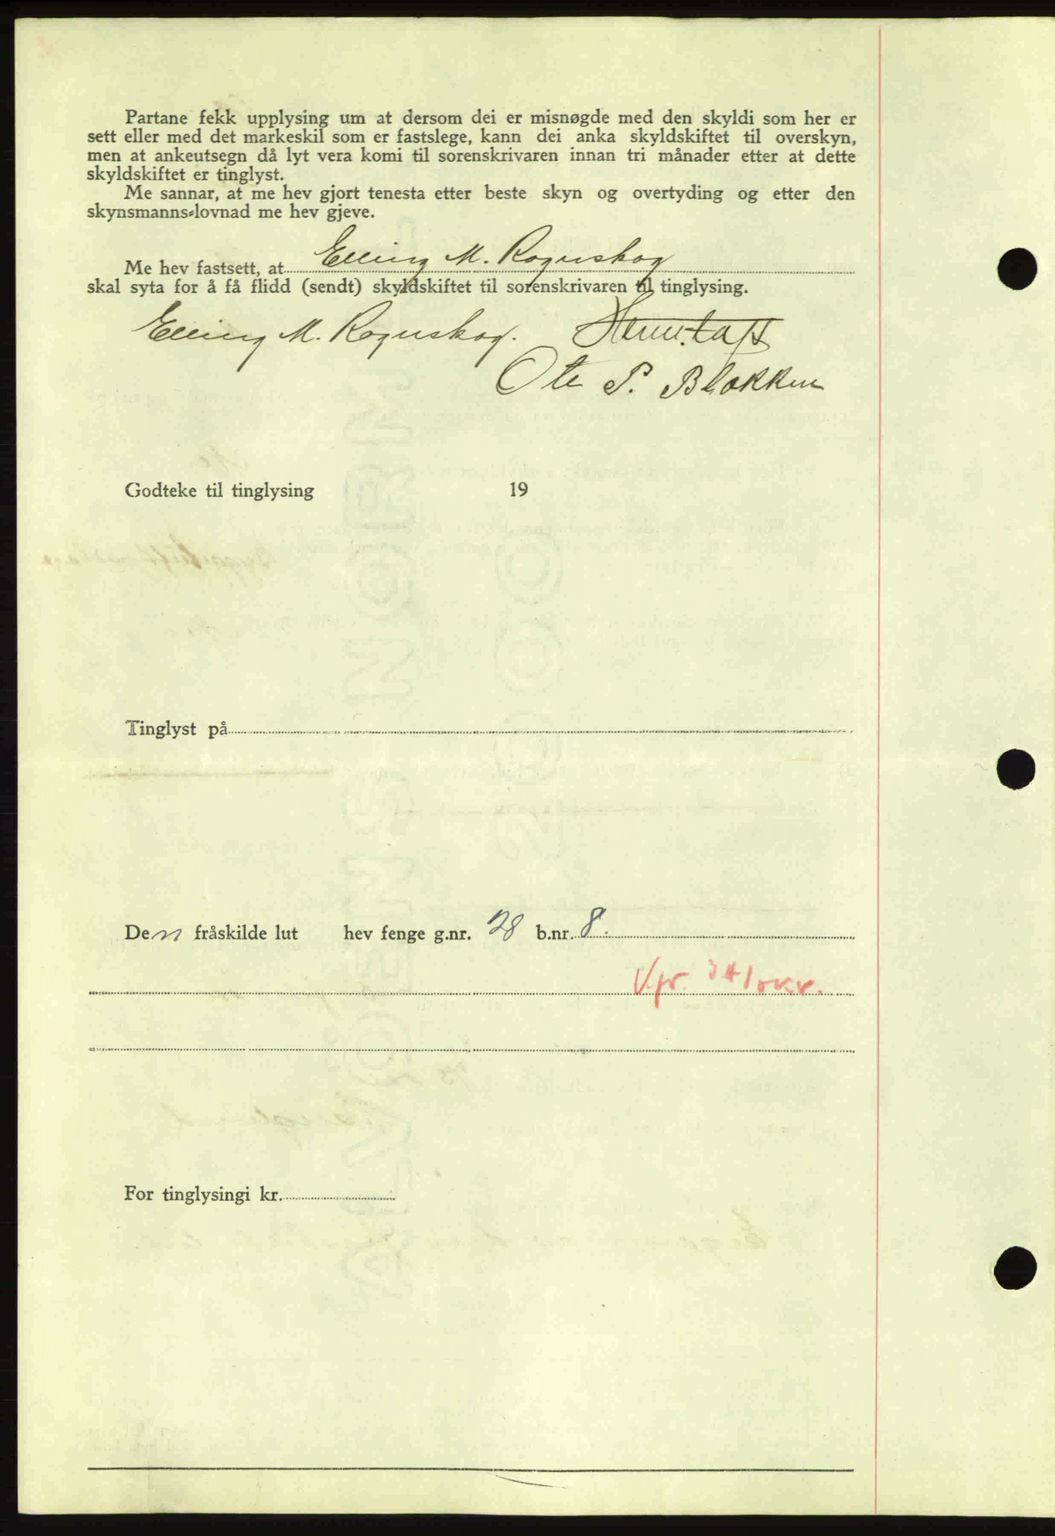 Partane fekk upplysing um at dersom dei er misnøgde med den skyldi som her er
sett eller med det markeskil som er fastslege, kann dei anka skyldskiftet til overskyn,
men at ankeutsegn då lyt vera komi til sorenskrivaren innan tri månader etter at dette
skyldskiftet er tinglyst.
Me sannar, at me hev gjort tenesta etter beste skyn og overtyding og etter den
skynsmanns-lovnad me hev gjeve.
Me hev fastsett, at Elling M. Rognskog
skal syta for å få flidd (sendt) skyldskiftet til sorenskrivaren til tinglysing.
Elling M. Rognskog.
P. Blekken
Godteke til tinglysing 19
Tinglyst på
Den fråskilde lut hev fenge g.nr. 28 b.nr. 8.
V.pr.
For tinglysingi kr.